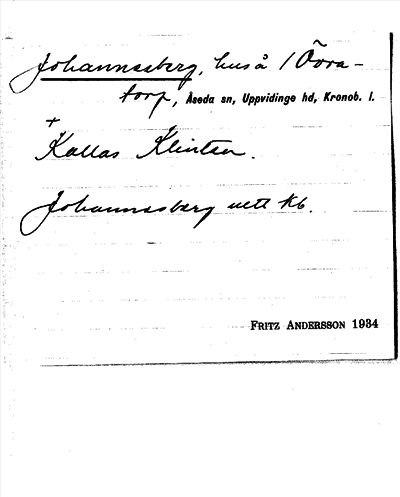 Johannesberg, hus å 1 Övra-
torp, Åseda sn, Uppvidinge hd, Kronob. l.
+
Kallas Klinten.
Johannesberg uttl kb.
FRITZ ANDERSSON 1934